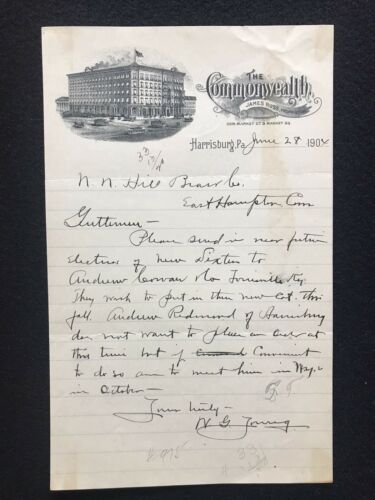 THE
Commonwealth,
JAMES RUSS,
COR. MARKET ST & MARKET SQ
Harrisburg, Pa. June 28 1904
N. N. Hill Brass Co.
East Hampton, Conn
Gentlemen —
Please send in near future
of New to
Andrew Cowan Co Ky.
They wish to put in their new Cat. this
fall. Andrew Redmond of Harrisburg
does not want to place an order at
this time but if Convenient
to do so am to meet him in
in October —
Yours truly —
W G Young